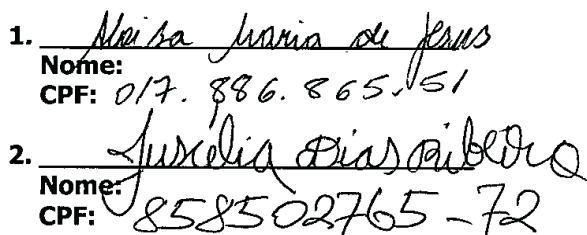 1. Maria de Jesus
Nome:
CPF: 017.886.865.51
2. Juscélia Dias Ribeiro
Nome:
CPF: 858502765-72